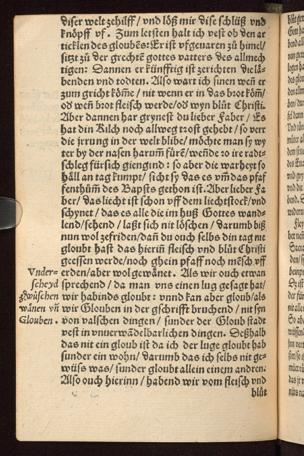 diser welt zehilff / und löß mir dise schlüß und
knöpff uf. Zum letsten halt ich vest ob den ar
ticklen des gloubēs: Er ist ufgenaren zů himel /
sitzt zů der grechtē gottes vatters des allmech
tigen: Dannen er künfftig ist zerichten die lä-
benden und todten. Also wart ich sinen wen er
zum gricht kōme / nit wenn er in das brot kom̄ /
od wen̄ brot fleisch werde / od wyn blůt Christi.
Aber dannen har grynest du lieber Faber / Es
hat din Bilch noch allweg trost gehebt / so verr
die jrrung in der welt blibe / möchte man sy wy
ter by der nasen harumb fůrē / wende so ire radt
schleg für sich giengind: so aber die warheyt so
häll an tag kumpt / sicht sy das es um̄ das pfaf
fenthům des Bapsts gethon ist. Aber lieber Fa
ber / das liecht ist schon uff dem liechtstock / und
schynet / das es alle die im huß Gottes wand-
lend / sehend / laßt sich nit löschen / darumb biß
nun wol zefriden / dan̄ du ouch selbs din tag nie
gloubt hast das hierin̄ fleisch und blůt Christi
geessen werde / noch ghein pfaff noch mēsch uff
erden / aber wol gewänet. Als wir ouch etwan
sprechend / da man uns einen lug gesagt hat /
wir habinds gloubt: unnd kan aber gloub / als
wir Glouben in der gschrifft bruchend / nit syn
von valschen dingen / sunder der Gloub stadt
vest in unuerwädelbarlichen dingen. Deßhalb
das nit ein gloub ist da ich der luge gloubt hab
sunder ein wohn / darumb das ich selbs nit ge-
wüss was / sunder gloubt allein einem andren.
Also ouch hierinn / habend wir vom fleysch und
blůt
Under-
scheyd
zwüschen
wänen un̄
Glouben.